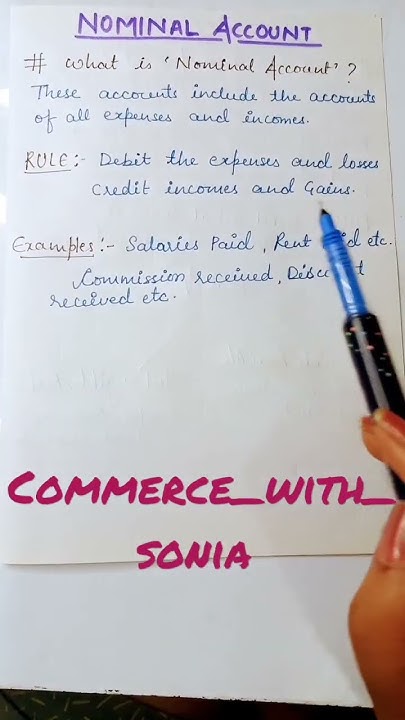 NOMINAL ACCOUNT
# What is 'Nominal Account' ?
These accounts include the accounts
of all expenses and incomes.
RULE:- Debit the expenses and losses
Credit incomes and Gains.
Examples:- Salaries Paid, Rent etc.
Commission received,
received etc.
COMMERCE_WITH_
SONIA